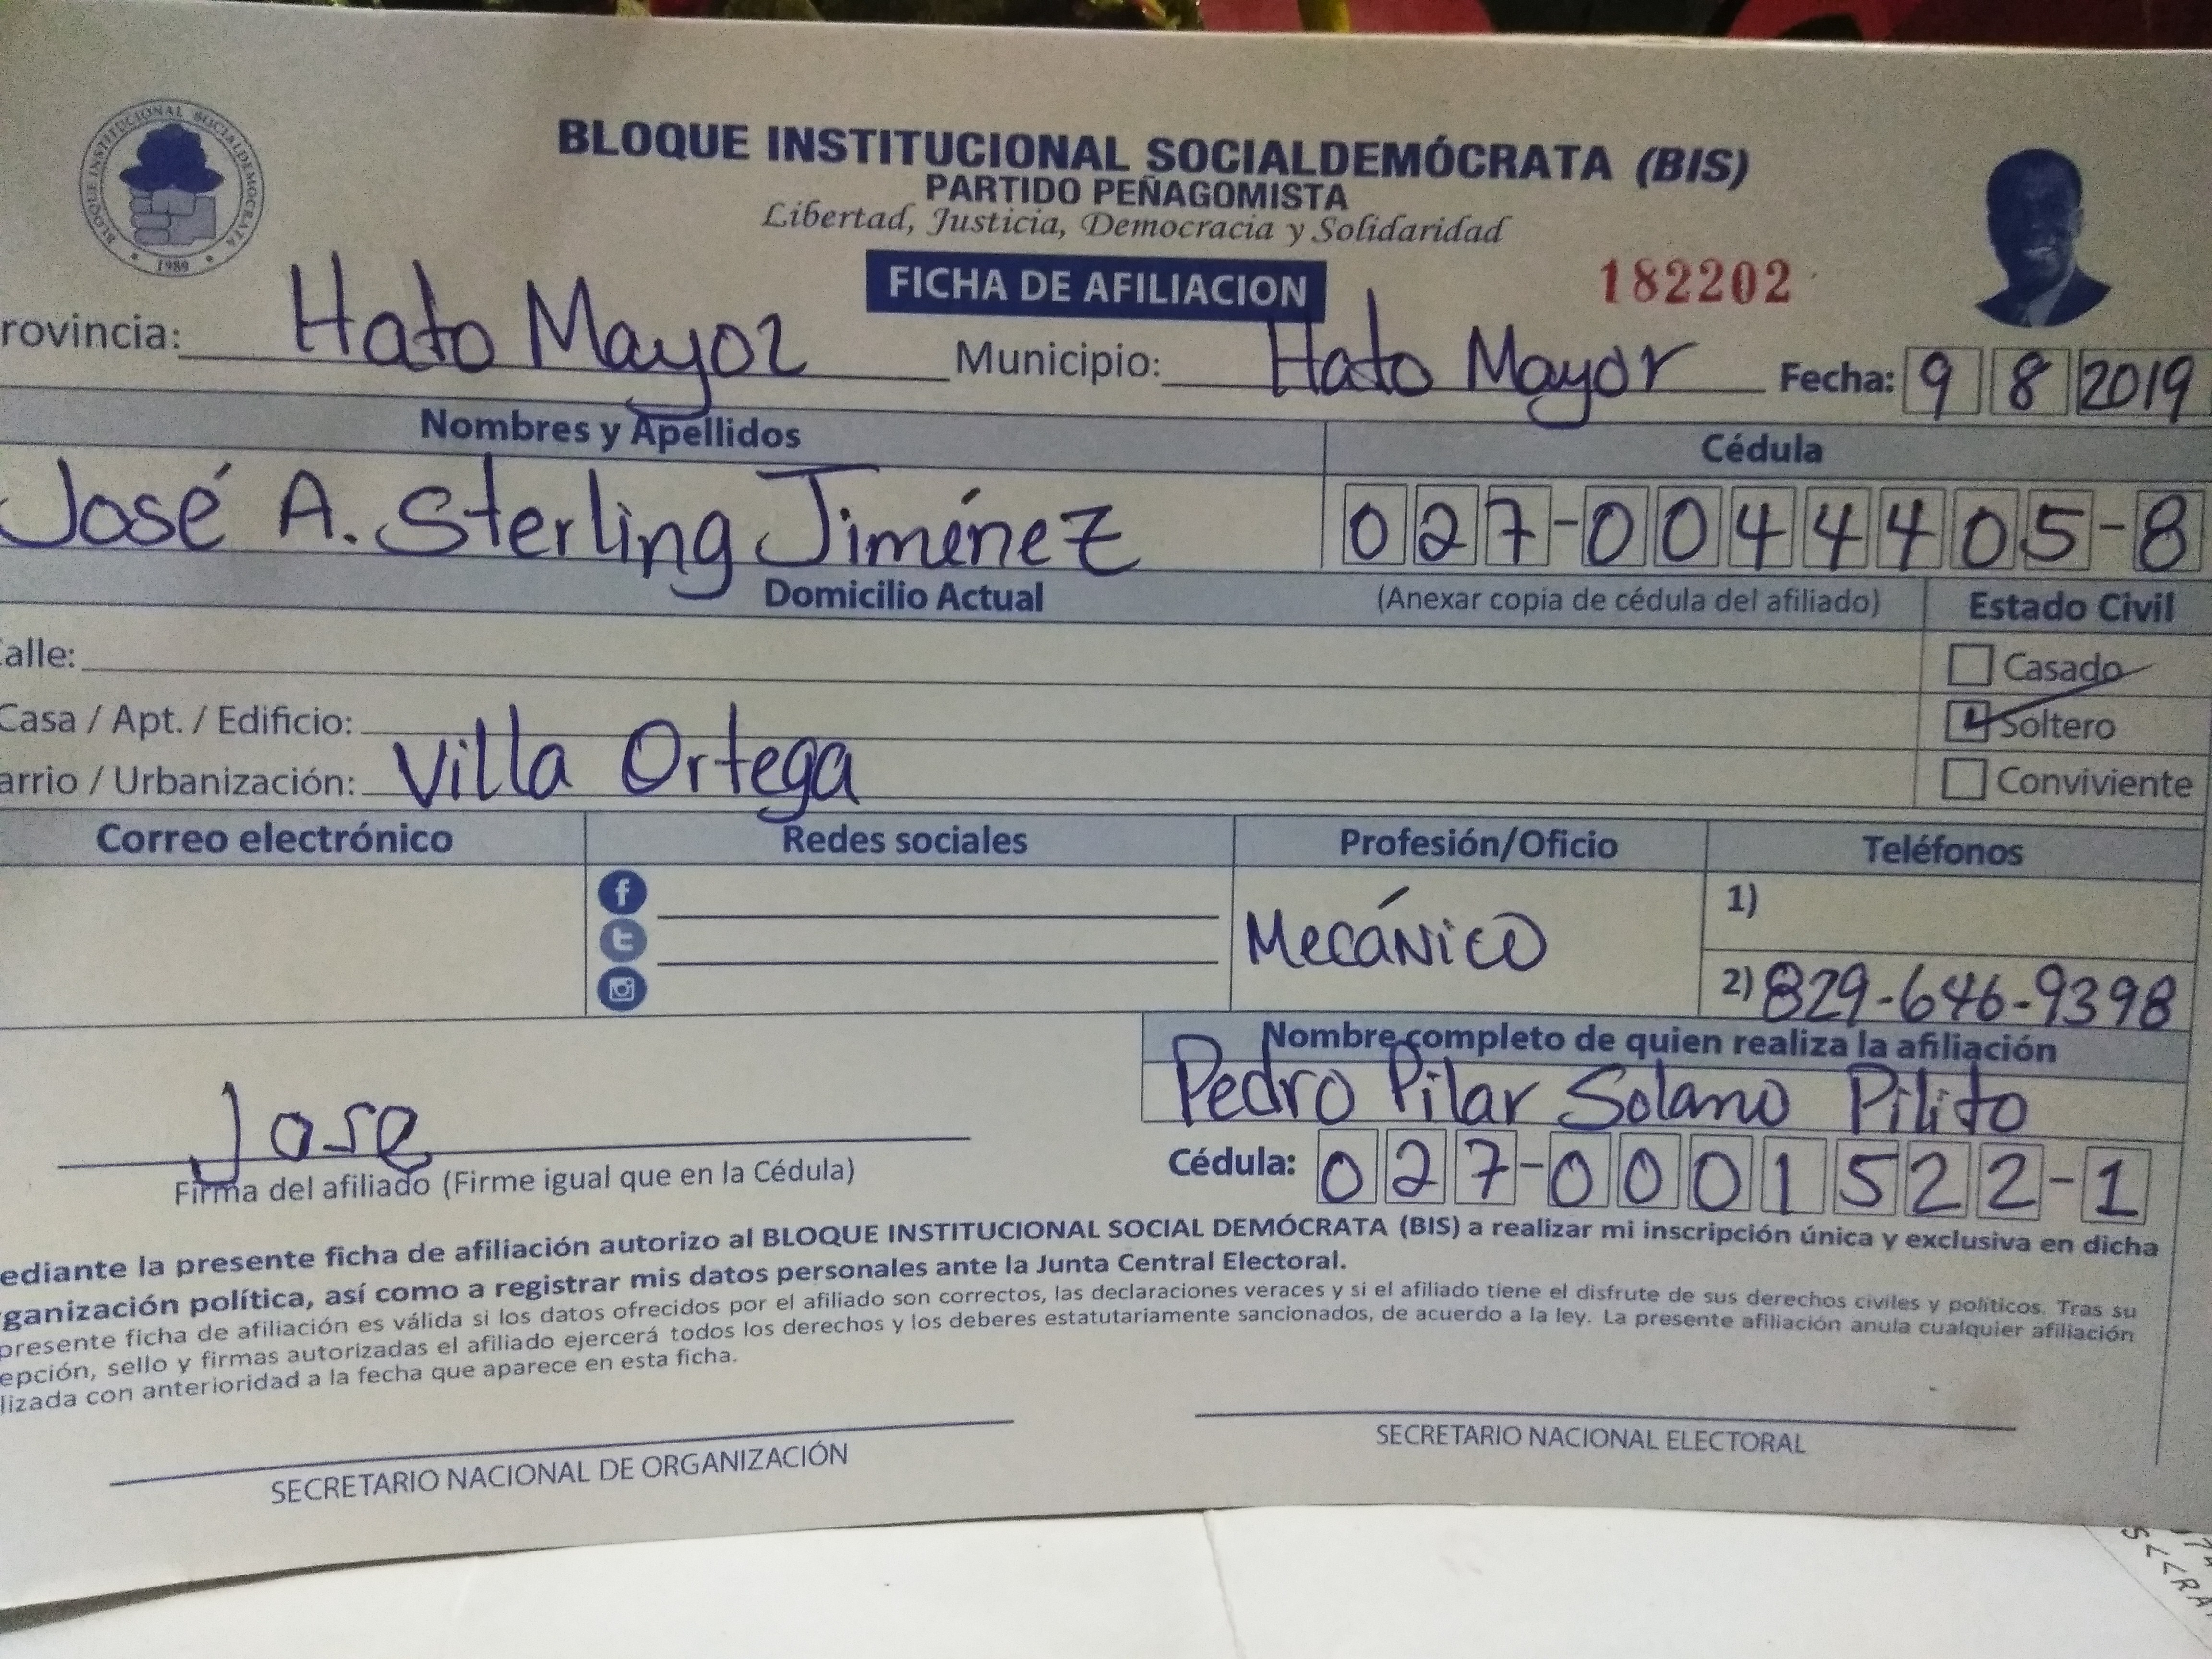 BLOQUE INSTITUCIONAL SOCIALDEMOCRATA
1989
BLOQUE INSTITUCIONAL SOCIALDEMÓCRATA (BIS)
PARTIDO PEÑAGOMISTA
Libertad, Justicia, Democracia y Solidaridad
FICHA DE AFILIACION
182202
rovincia: Hato Mayor Municipio: Hato Mayor Fecha: 9 8 2019
Nombres y Apellidos Cédula
José A. Sterling Jiménez 027-0044405-8
Domicilio Actual (Anexar copia de cédula del afiliado) Estado Civil
alle: Casado
Casa / Apt. / Edificio: Soltero
arrio / Urbanización: Villa Ortega Conviviente
Correo electrónico Redes sociales Profesión/Oficio Teléfonos
Mecánico 1)
2) 829-646-9398
Nombre completo de quien realiza la afiliación
Pedro Pilar Solano Pilito
Jose
Firma del afiliado (Firme igual que en la Cédula) Cédula: 027-0001522-1
ediante la presente ficha de afiliación autorizo al BLOQUE INSTITUCIONAL SOCIAL DEMÓCRATA (BIS) a realizar mi inscripción única y exclusiva en dicha
ganización política, así como a registrar mis datos personales ante la Junta Central Electoral.
presente ficha de afiliación es válida si los datos ofrecidos por el afiliado son correctos, las declaraciones veraces y si el afiliado tiene el disfrute de sus derechos civiles y políticos. Tras su
epción, sello y firmas autorizadas el afiliado ejercerá todos los derechos y los deberes estatutariamente sancionados, de acuerdo a la ley. La presente afiliación anula cualquier afiliación
lizada con anterioridad a la fecha que aparece en esta ficha.
SECRETARIO NACIONAL DE ORGANIZACIÓN SECRETARIO NACIONAL ELECTORAL